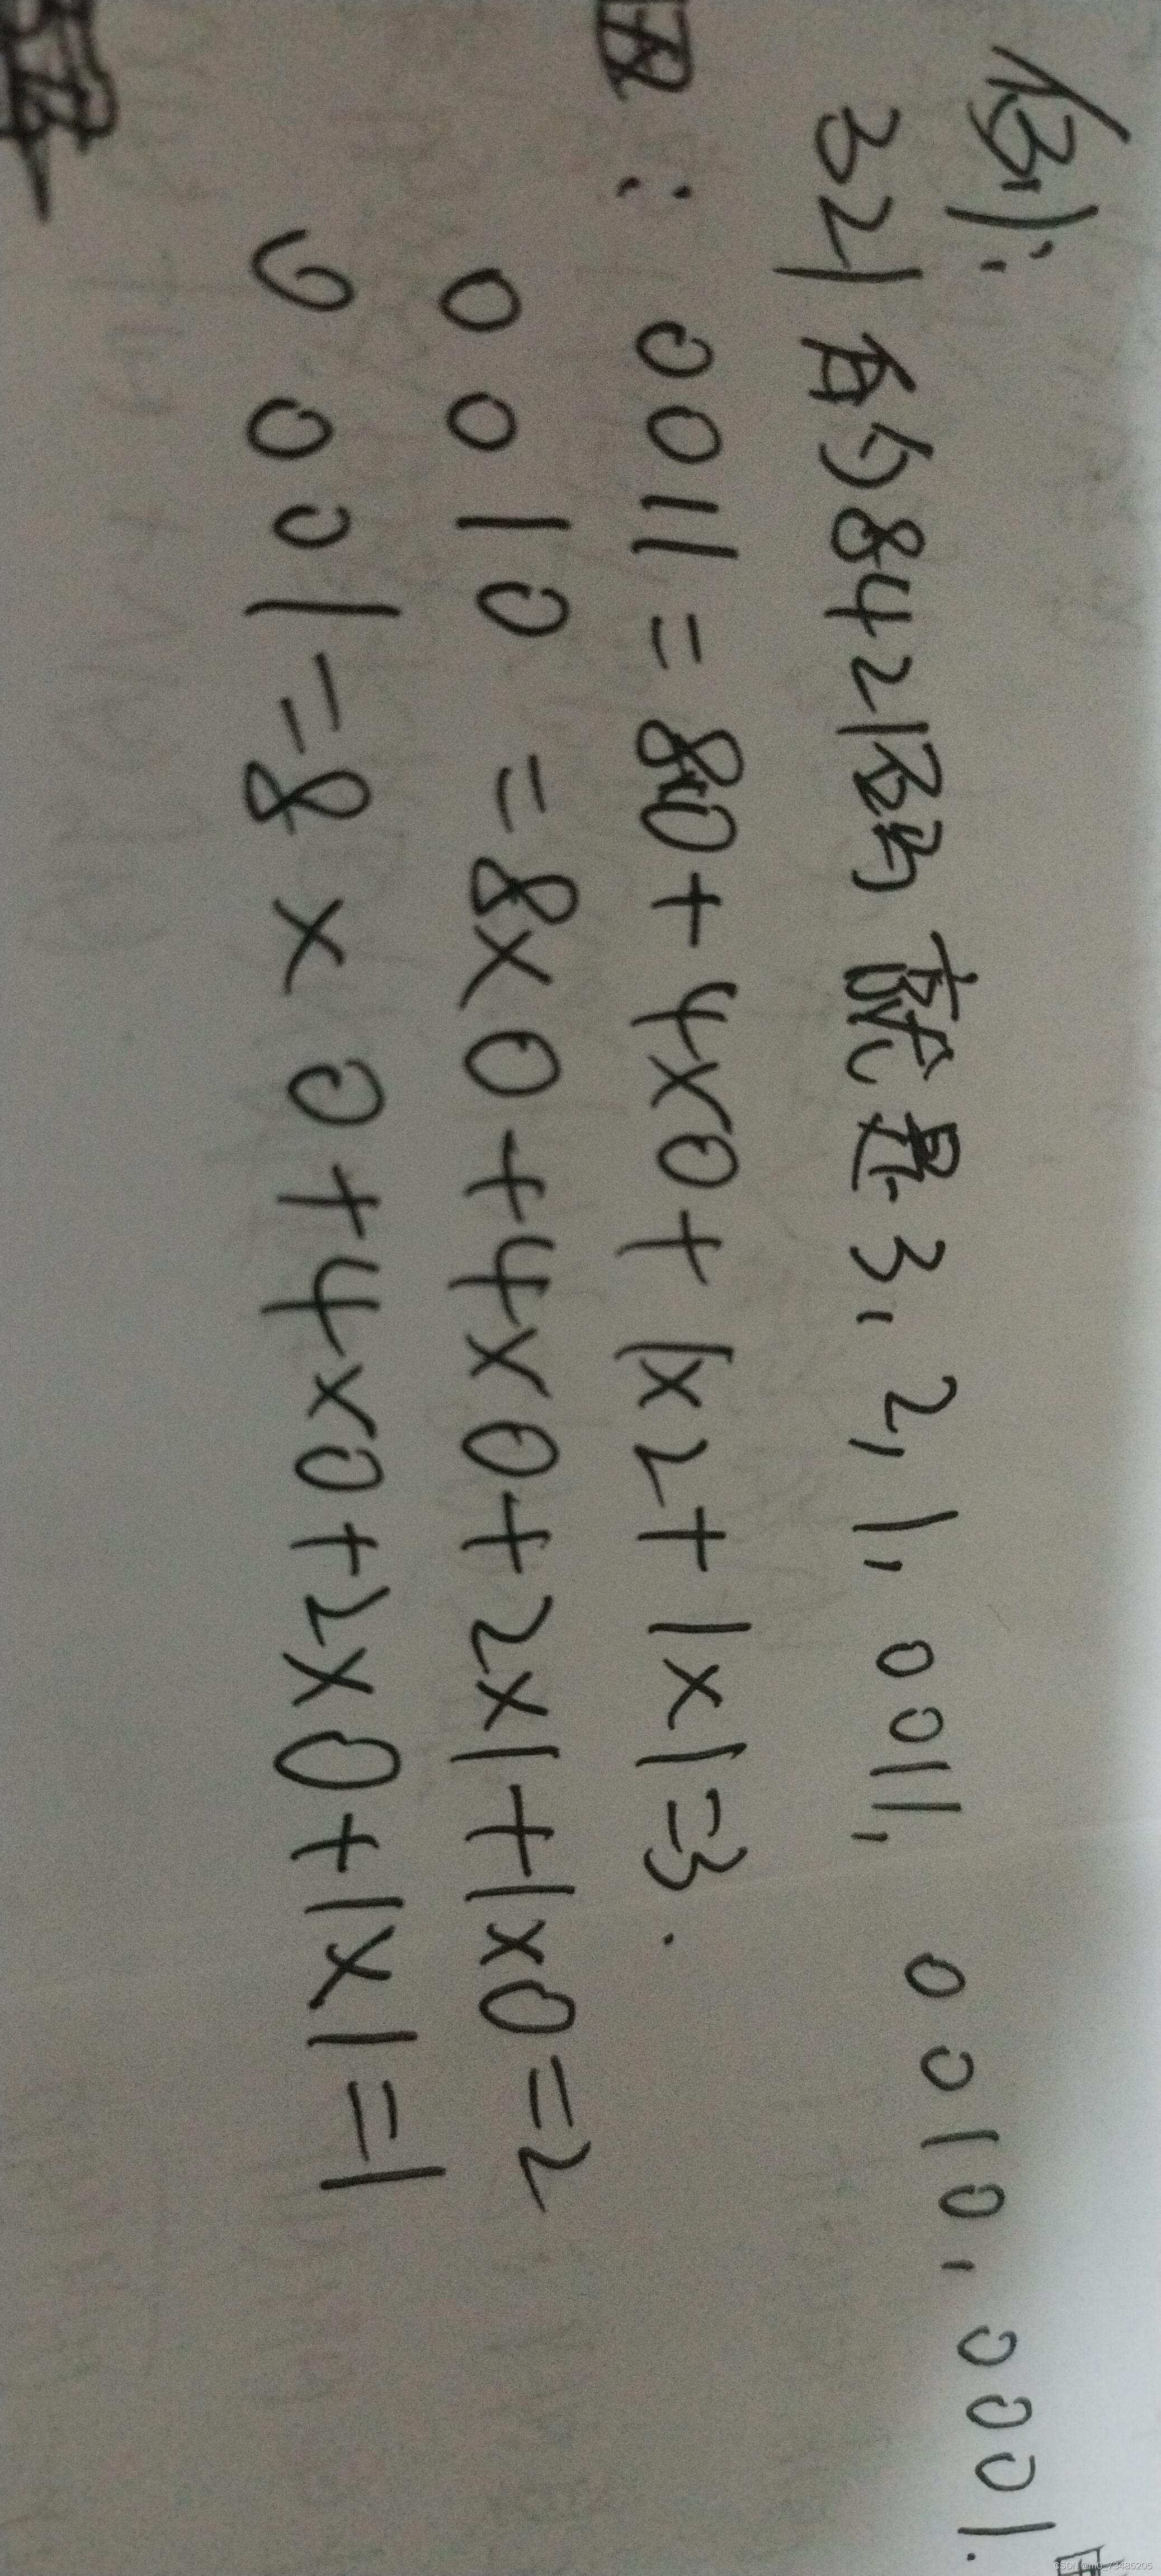 例：
321的8421码就是3,2,1,0011,0010,0001.
因：0011=8x0+4x0+1x2+1x1=3.
0010=8x0+4x0+2x1+1x0=2
0001=8x0+4x0+2x0+1x1=1
CSDN @m0_73485205